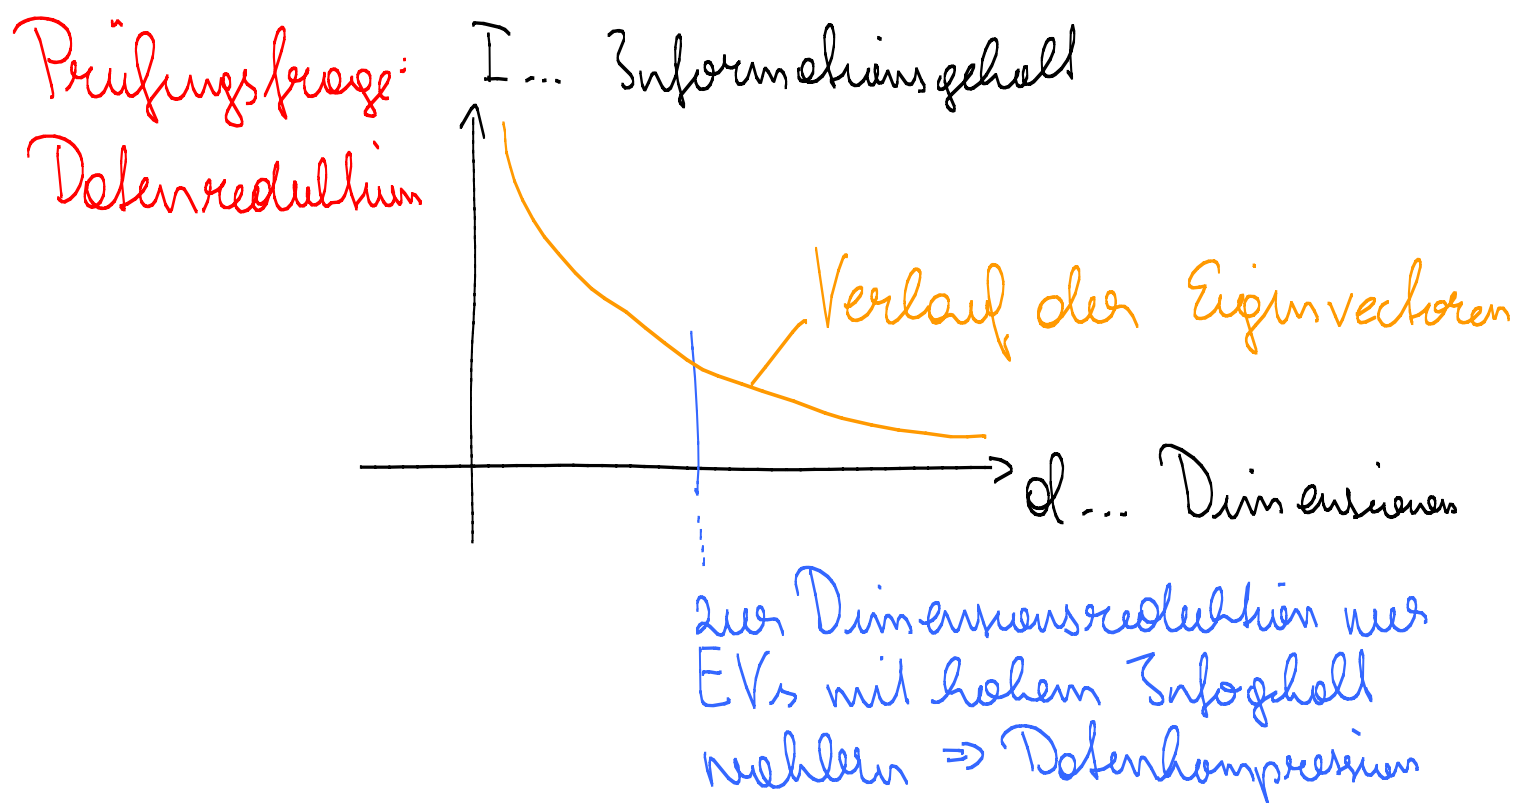 Prüfungsfrage:
Datenreduktion
I... Informationsgehalt
Verlauf der Eigenvectoren
d... Dimensionen
zur Dimensionsreduktion nur
EVs mit hohem Infogehalt
wählen ⇒ Datenkompression